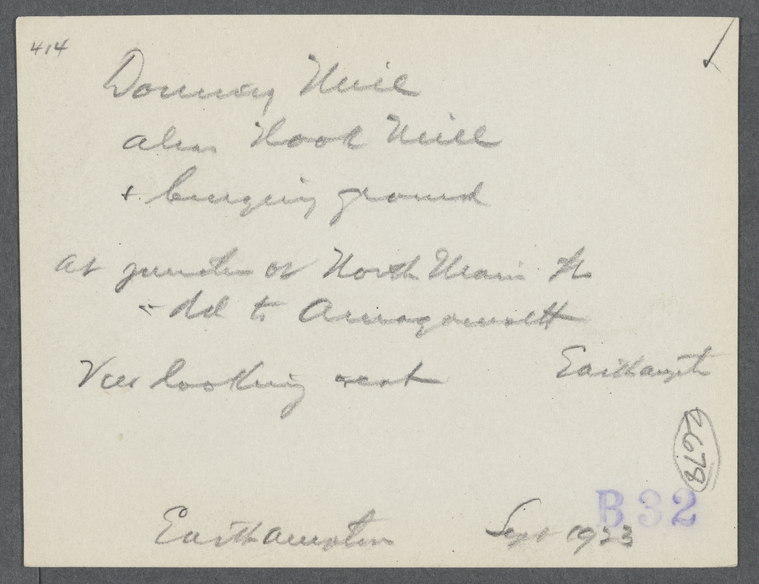 414
Dominy Mill
alias Hook Mill
+ burying ground
at junction of North Main St
+ Rd to Amagansett
View looking west Easthampton
2678
B32
Easthampton Sept 1923